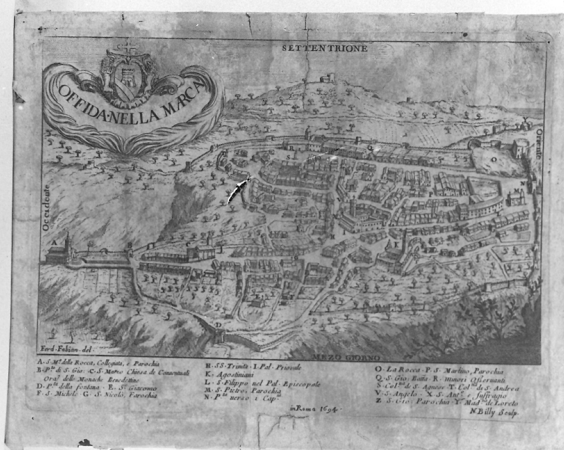 SETTENTRIONE
OFFIDA NELLA MARCA
Occidente
Oriente
MEZO GIORNO
Ferd. Fabien. del.
A. S. Mª. della Rocca, Collegiata, e Parochia
B. Pta. di S. Gio. C. S. Marco Chiesa di Conventuali
Orat. delle Monache Benedettine
D. Pta. della fontana E. S. Giacomo
F. S. Michele G. S. Nicolò, Parochia
H. SS. Trinità I. Pal. Priorale
K. Agostiniani
L. S. Filippo nel Pal. Episcopale
M. S. Pietro, Parochia
N. Pta. verso i Cap.
O. La Rocca P. S. Martino, Parochia
Q. S. Gio. Batta R. Minori Osservanti
S. Col. di S. Agnese T. Col. di S. Andrea
V. S. Angelo X. S. Ant. e suffragio
Z. S. Gio. Parochia Y. Mad. di Loreto
in Roma 1694
N. Billy Sculp.